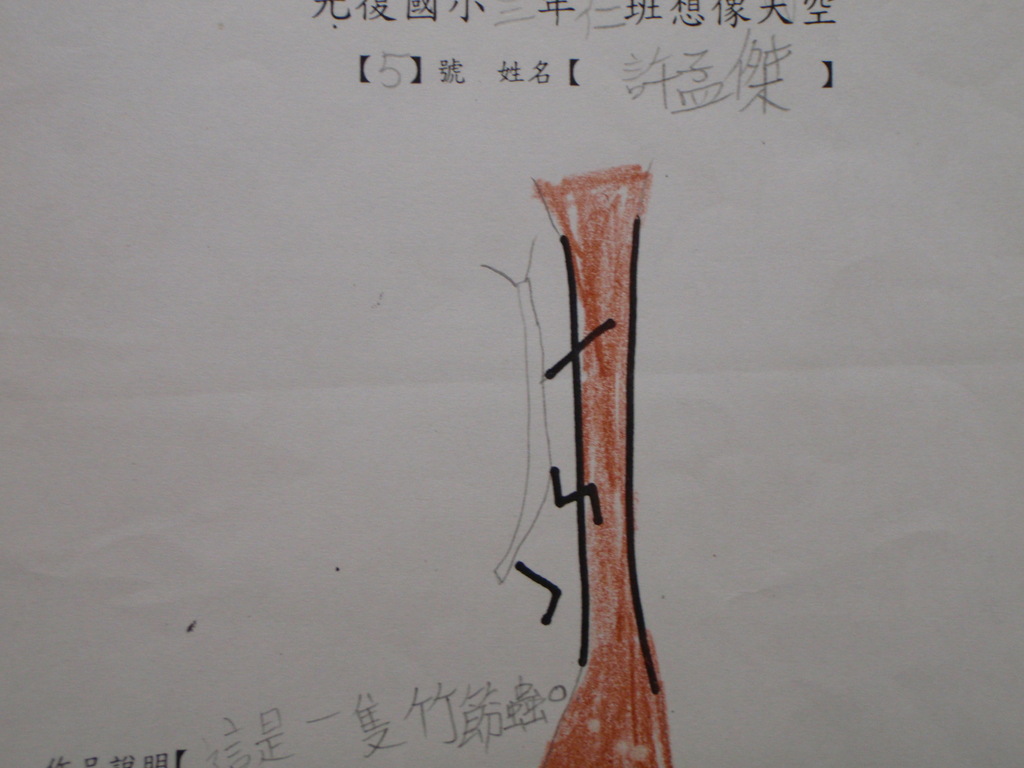 光復國小三年仁班想像天空
【5】號 姓名【許孟傑】
作品說明【這是一隻竹節蟲。